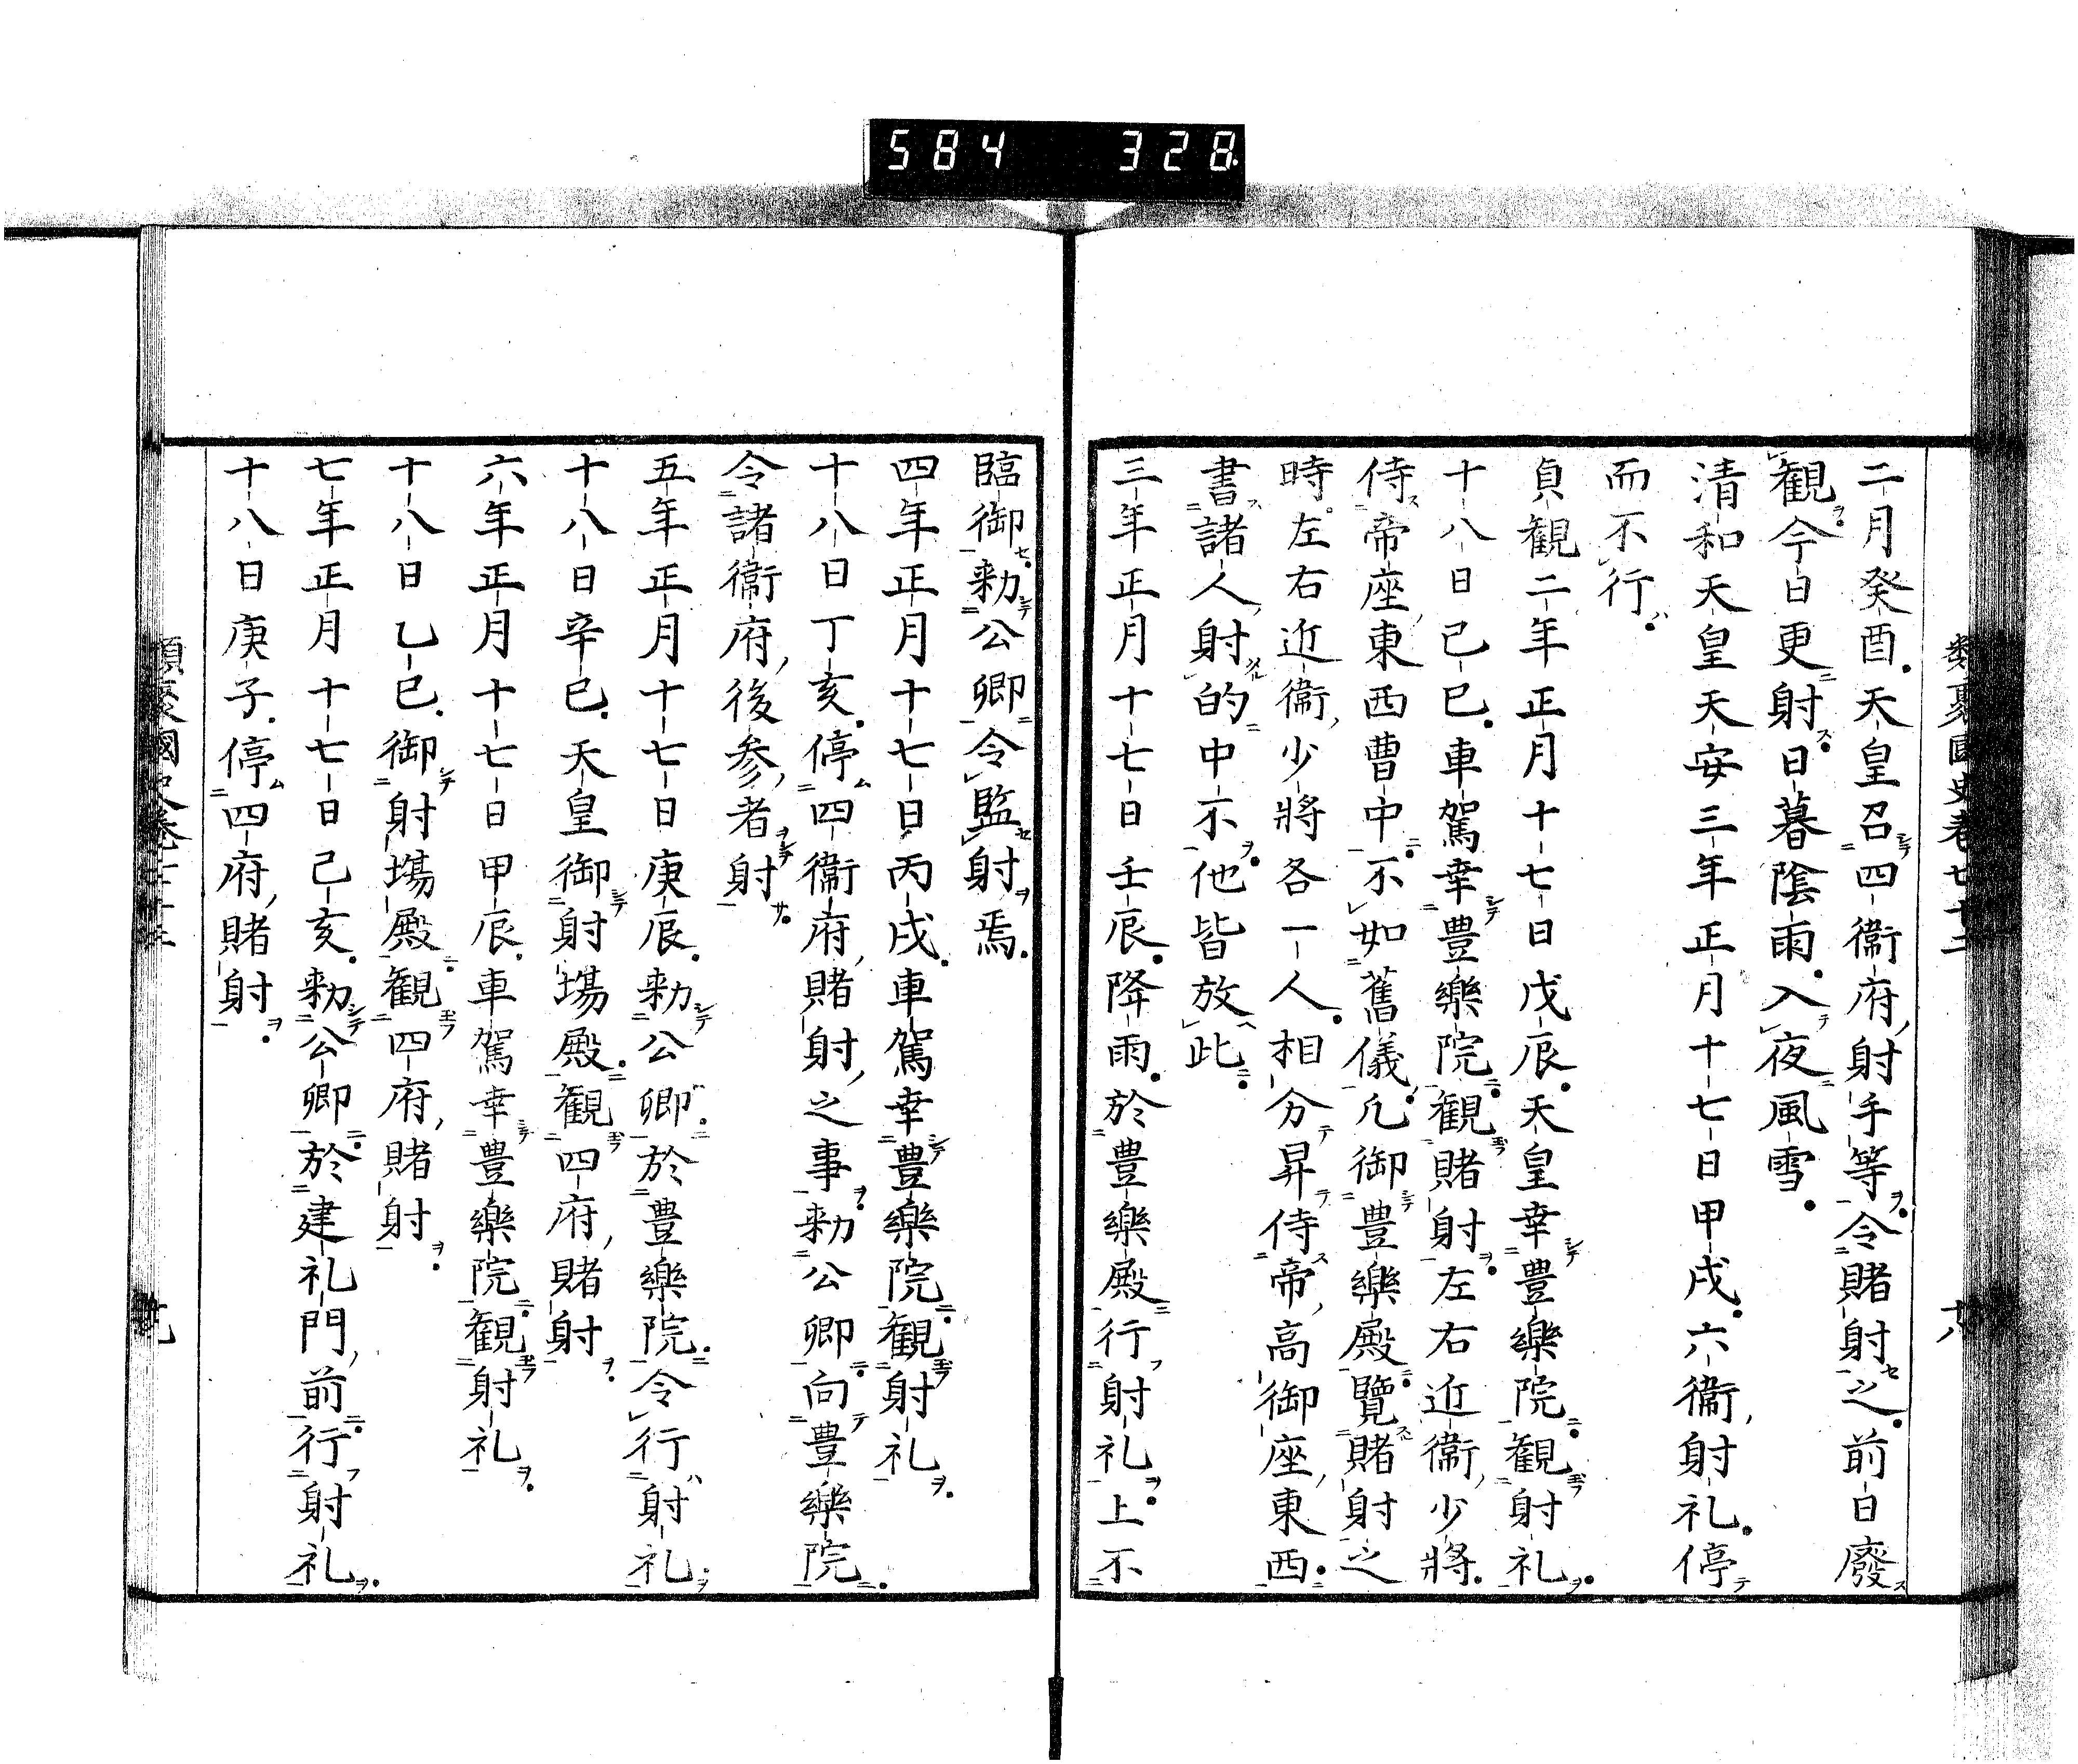 584 328
類聚國史卷七十二
廿八
二月癸酉天皇召四衞府射手等令賭射之前日廢
観今日更射日暮陰雨入夜風雪
清和天皇天安三年正月十七日甲戌六衞射礼停
而不行
貞観二年正月十七日戊辰天皇幸豊樂院観射礼
十八日己巳車駕幸豊樂院観賭射左右近衞少將
侍帝座東西曹中不如舊儀凡御豊樂殿覽賭射之
時左右近衞少將各一人相分昇侍帝高御座東西
書諸人射的中不他皆放此
三年正月十七日壬辰降雨於豊樂殿行射礼上不
臨御勅公卿令監射焉
四年正月十七日丙戌車駕幸豊樂院観射礼
十八日丁亥停四衞府賭射之事勅公卿向豊樂院
令諸衞府後参者射
五年正月十七日庚辰勅公卿於豊樂院令行射礼
十八日辛巳天皇御射場殿観四府賭射
六年正月十七日甲辰車駕幸豊樂院観射礼
十八日乙巳御射場殿観四府賭射
七年正月十七日己亥勅公卿於建礼門前行射礼
十八日庚子停四府賭射